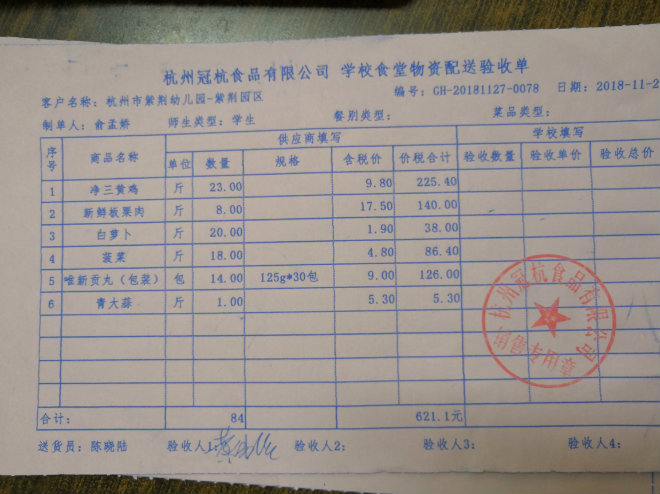 杭州冠杭食品有限公司 学校食堂物资配送验收单
客户名称：杭州市紫荆幼儿园-紫荆园区 编号：GH-20181127-0078 日期：2018-11-2
制单人：俞孟娇 师生类型：学生 餐别类型： 菜品类型：
序号 商品名称 供应商填写 学校填写
单位 数量 规格 含税价 价税合计 验收数量 验收单价 验收总价
1 净三黄鸡 斤 23.00 9.80 225.40
2 新鲜板栗肉 斤 8.00 17.50 140.00
3 白萝卜 斤 20.00 1.90 38.00
4 菠菜 斤 18.00 4.80 86.40
5 唯新贡丸（包装） 包 14.00 125g*30包 9.00 126.00
6 青大蒜 斤 1.00 5.30 5.30
杭州冠杭食品有限公司
销售专用章
合计： 84 621.1元
送货员：陈晓陆 验收人1： 验收人2： 验收人3： 验收人4：